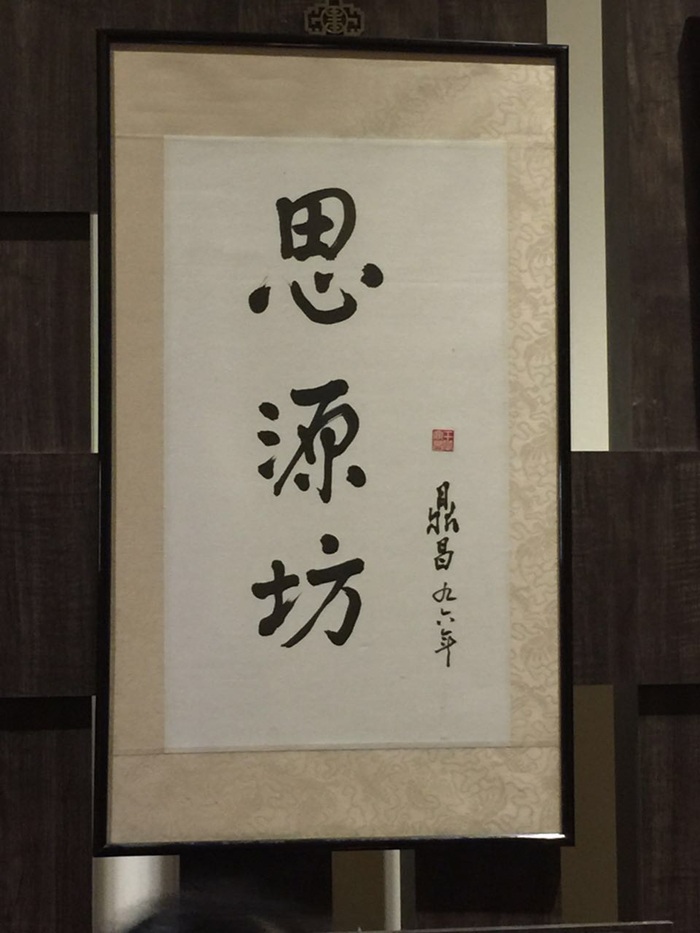 思源坊
鼎昌九六年